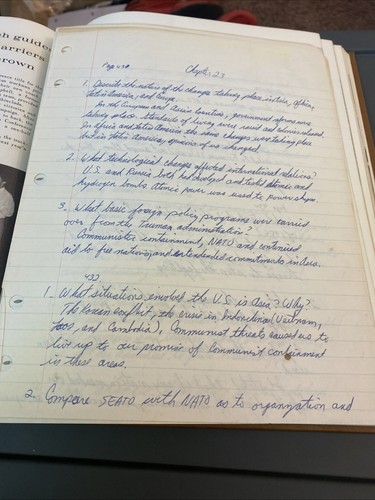 h guide
arriers
rown
Page 430 Chapter 29
1. Describe the nature of the changes taking place in Asia, Africa,
Latin America, and Europe.
In the European and Asia Countries, government reforms were
taking place. Standards of living were raised and
In Africa and Latin America the same changes were taking place
but in Latin America, of were changed.
2. What technological changes affected international relations?
U.S. and Russia both had developed and tested atomic and
hydrogen bombs. Atomic power was used to power ships.
3. What basic foreign policy programs were carried
over from the Truman administration?
Communister containment, NATO and continued
aid to free nations and extended commitments in Asia.
432
1. What situations involved the U.S. in Asia? Why?
The Korean Conflict, the Crisis in Indochina (Vietnam,
Laos, and Cambodia), Communist threats caused us to
live up to our promise of Communist containment
in these areas.
2. Compare SEATO with NATO as to organization and